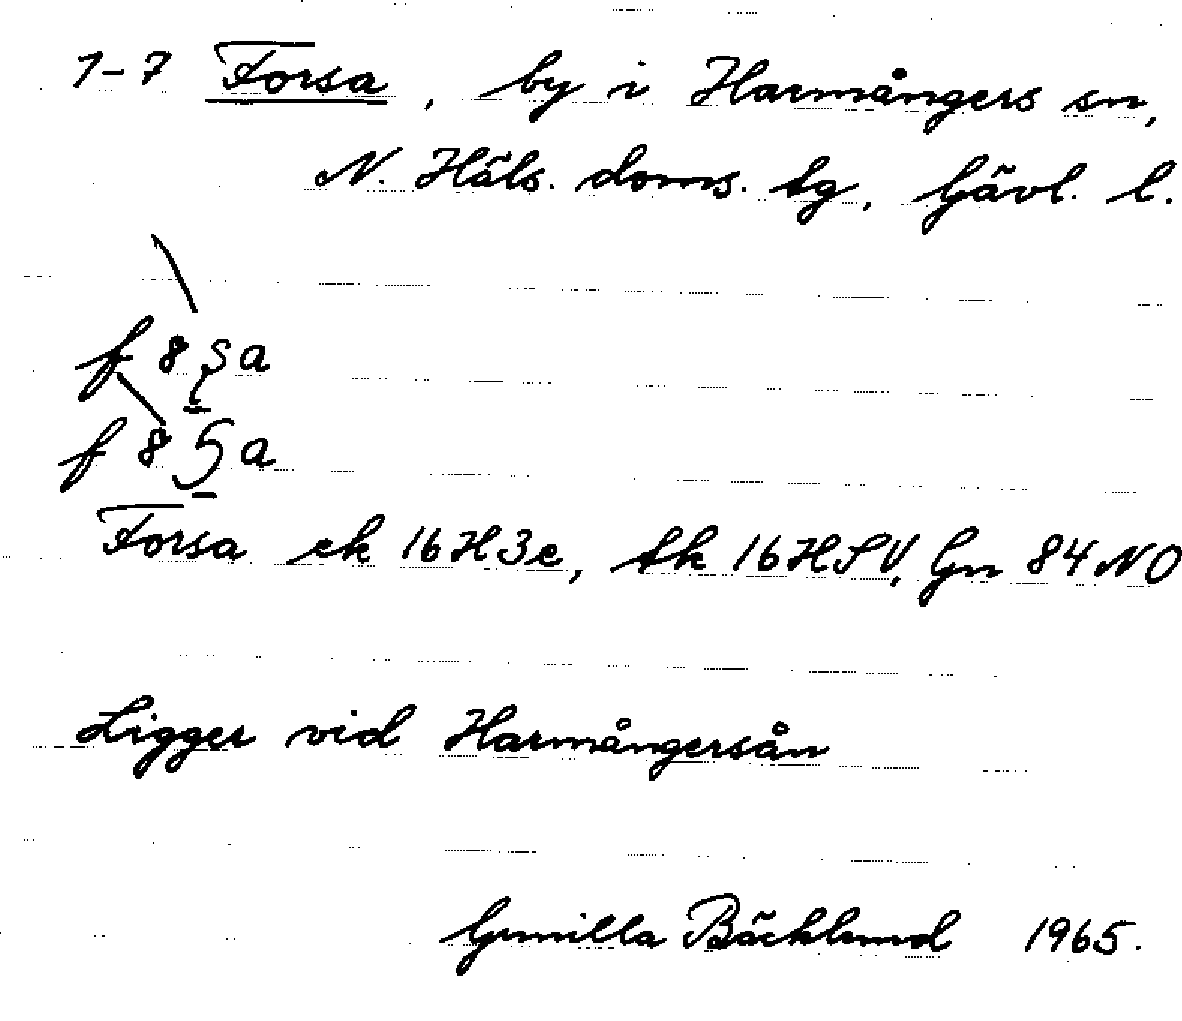 1-7 Forsa, by i Harmångers sn,
N. Häls. doms. tg, Gävl. l.
Forsa ek 16H3e, tk 16HSV, Gn 84NO
Ligger vid Harmångersån
Gunilla Bäcklund 1965.